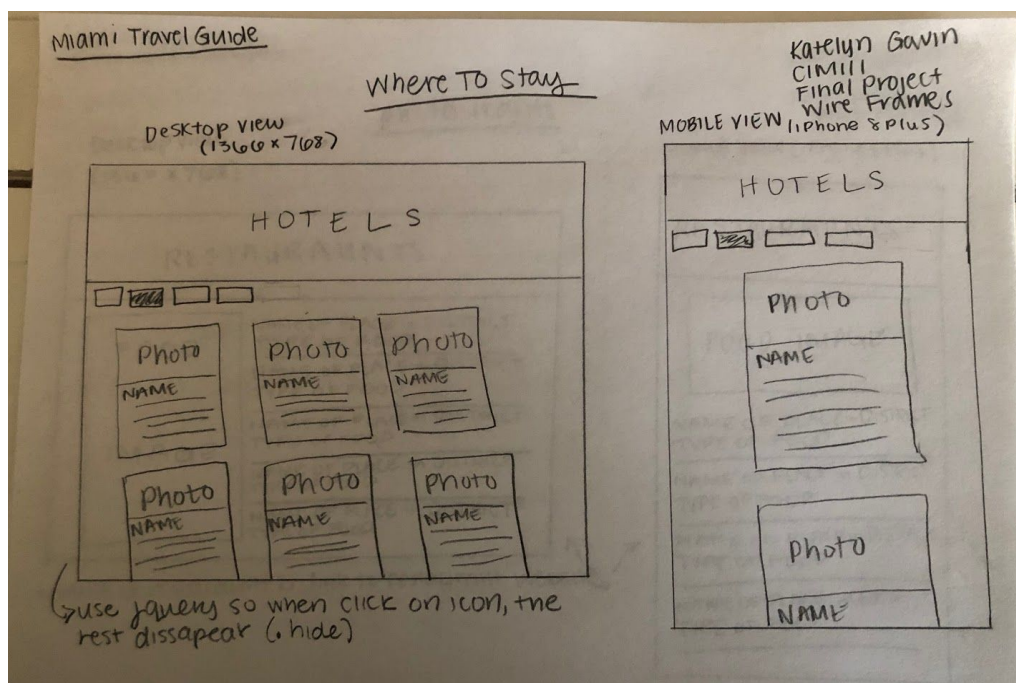 Miami Travel Guide
Where To Stay
Katelyn Gavin
CIM111
Final Project
Wire Frames
Desktop View
(1366 x 768)
HOTELS
Photo
Photo
Photo
NAME
NAME
NAME
Photo
Photo
Photo
NAME
NAME
NAME
use jquery so when click on icon, the
rest dissapear (.hide)
MOBILE VIEW (iphone 8 plus)
HOTELS
Photo
NAME
Photo
NAME